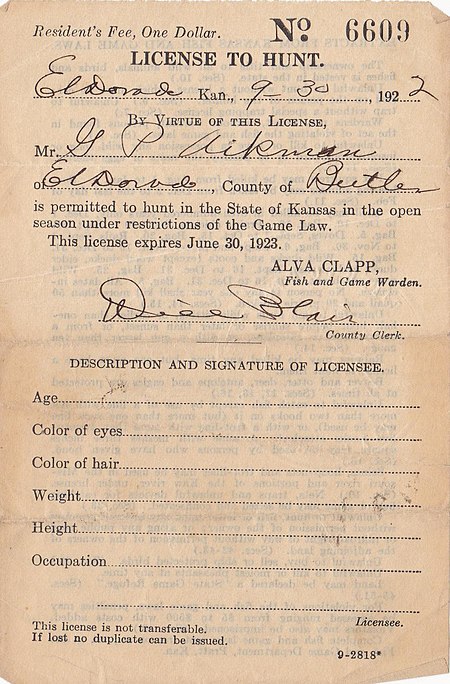 Resident's Fee, One Dollar. No. 6609
LICENSE TO HUNT.
ElDorado Kan., 9-30, 1922
By Virtue of this License,
Mr. G P Aikman
of ElDorado, County of Butler
is permitted to hunt in the State of Kansas in the open
season under restrictions of the Game Law.
This license expires June 30, 1923.
ALVA CLAPP,
Fish and Game Warden.
Blair
County Clerk.
DESCRIPTION AND SIGNATURE OF LICENSEE.
Age
Color of eyes
Color of hair
Weight
Height
Occupation
Licensee.
This license is not transferable.
If lost no duplicate can be issued.
9-2818*